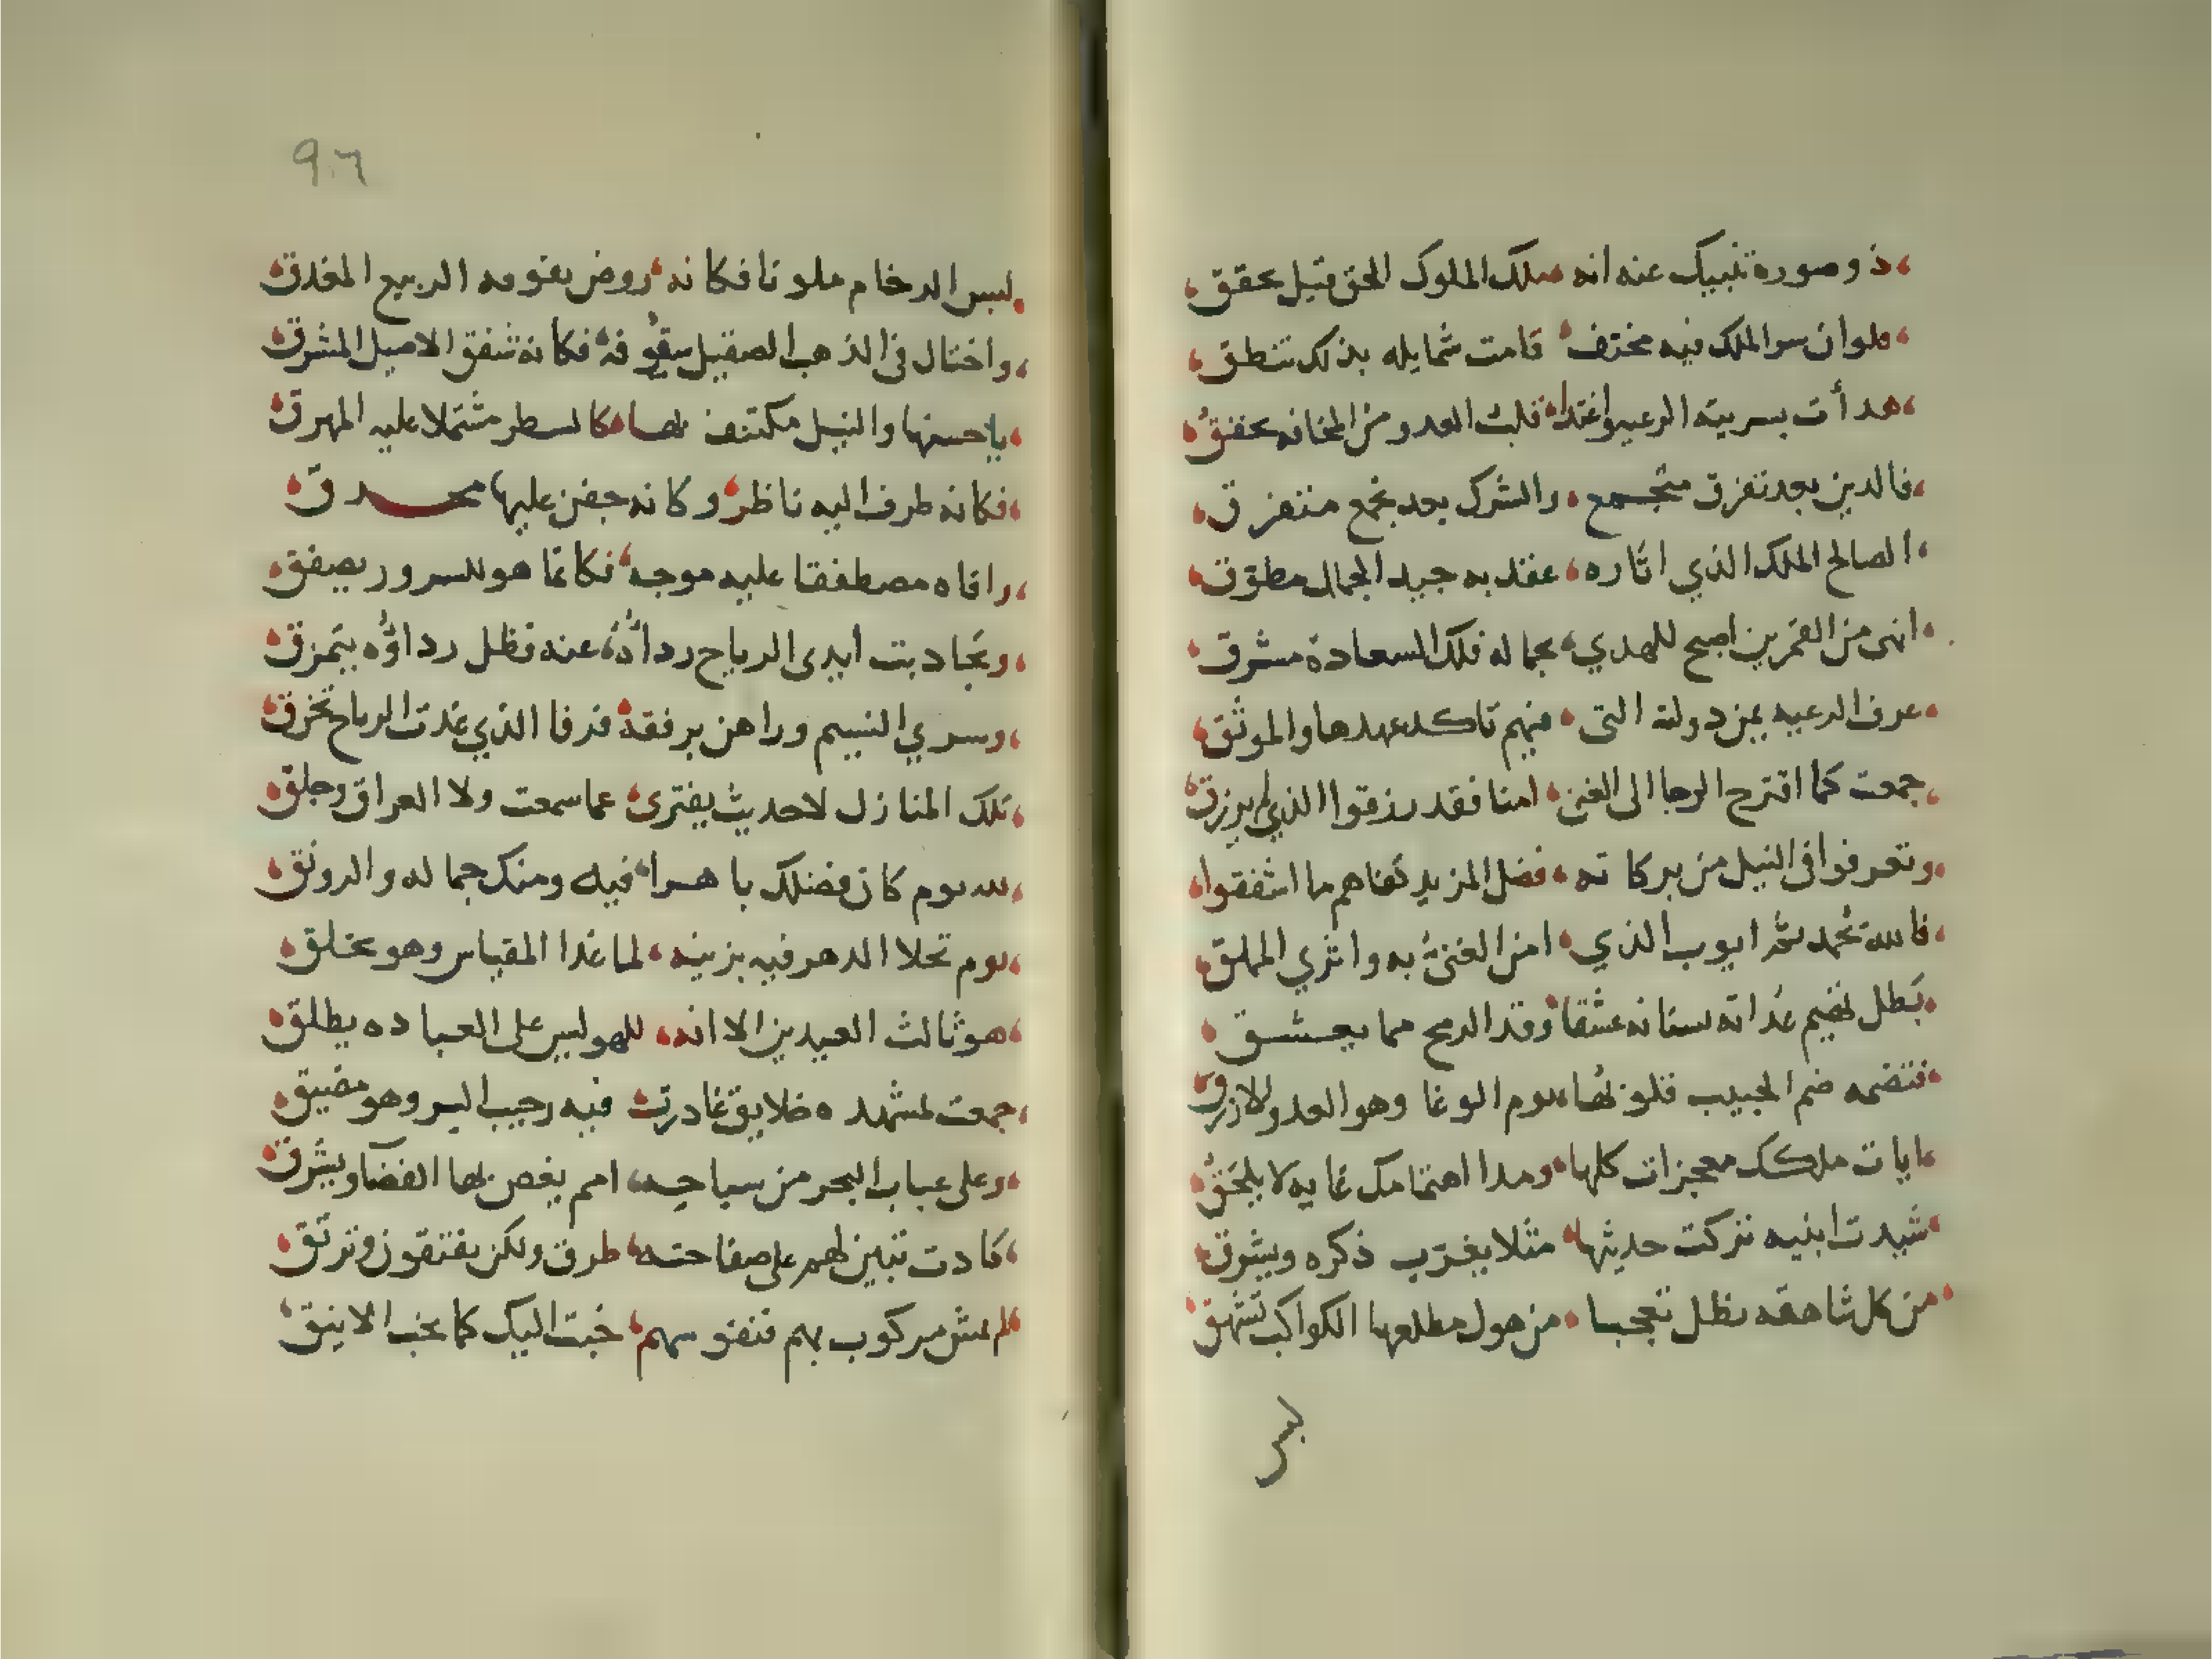 ذو صورة تنبيك عنه انه ملك الملوك الحق قبل يحقق
فلو ان سر الملك فيه مختف قامت شمايله بذلك تنطق
هدأت بسريته الرعيه واغتدا قلب العدو من المخافه يخفق
فالدين بعد تفرق متجمع والشرك بعد تجمع متفرق
الصالح الملك الذي اثاره عقد به جيد الجمال مطوق
ابهى من القمرين اصبح للهدي بجماله فلك السعادة مشرق
عرف الرعيه يمن دولته التى منهم تاكد عهدها والموثق
جمعت كما اقترح الرجا الى الغنى امنا فقد رزقوا الذي لم يرزق
وتعرفوا فى النيل من بركاته فضل المزيد كفاهم ما اشفقوا
فالله نحمد ثم ايوب الذي امن الغنىُ به واثري المملق
بطل نضيم عداته سنانه عشقا وقد الرمح مما يعشق
فتضمه ضم الحبيب قلوبها يوم الوغا وهو العدو الازرق
ايات ملكك معجزات كلها ومدا اهتمامك غايه لا يلحق
شيدت ابنيه تركت حديثها مثلا يغرب ذكره ويشرق
من كل شاهقه تظل تعجبا من هول مطلعها الكواكب تشهق
لبس
٩٦
لبس الرخام ملونا فكانه روض يفوفه الربيع المغدق
واختال فى الذهب الصقيل سقوفه فكانه شفق الاصيل المشرق
ياحسنها والنيل مكتنف بها كالسطر مشتملا عليه المهرق
فكانه طرف اليه ناظر وكانه جفن عليها محدق
وافاه مصطفقا عليه موجه فكانما هو للسرور يصفق
وتجادبت ايدى الرياح رداأه عنه فظل رداؤه يتمزق
وسري النسيم وراهن برفقه فرفا الذي غدت الرياح تخرق
تلك المنازل لا حديث يفترى عما سمعت ولا العراق وجلق
لله يوم كان فضلك باهرا فيه ومنك جماله والرونق
يوم تحلا الدهر فيه بزينه لما غدا المقياس وهو مخلق
هو ثالث العيدين الا انه للهو ليس على العباده يطلق
جمعت لمشهده خلايق غادرت فيه رحيب البر وهو مضيق
وعلى عباب البحر من سباحه امم يغص بها الفضا ويشرق
كادت تبين لهم على صفاحته طرق ولكن يفتقون وترتق
لم عش مركوب بهم فنفوسهم خبت اليك كما يخب الاينق